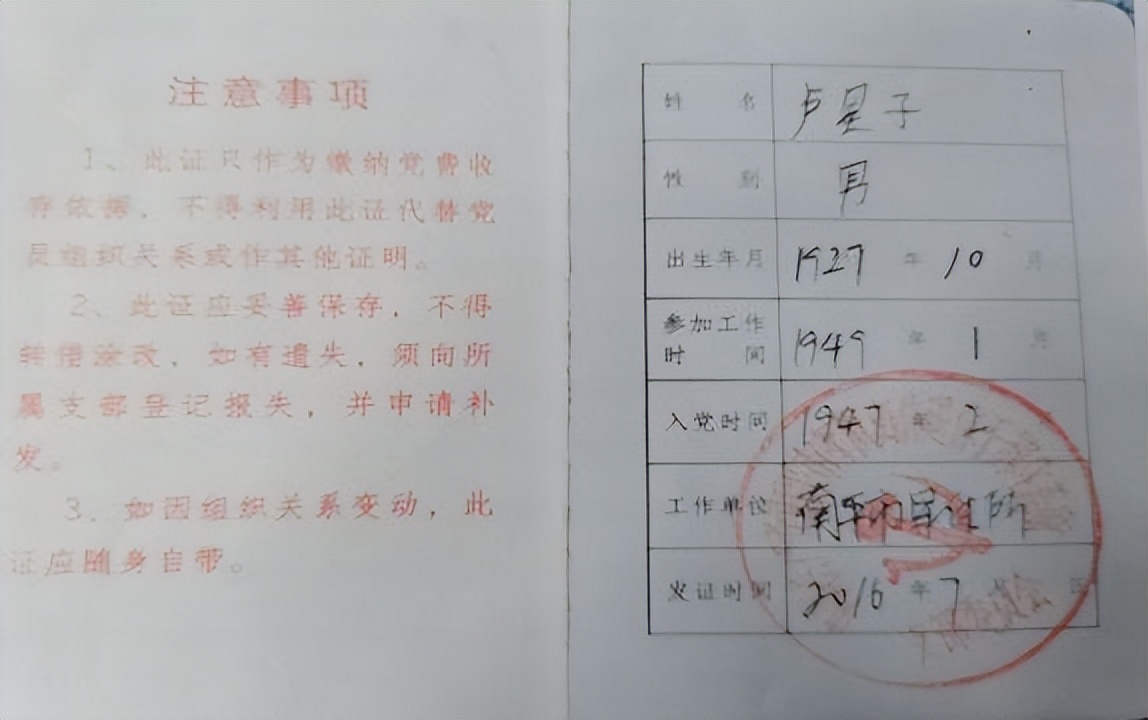 注意事项
1、此证只作为缴纳党费收
存依据，不得利用此证代替党
员组织关系或作其他证明。
2、此证应妥善保存，不得
转借涂改，如有遗失，须向所
属支部登记报失，并申请补
发。
3、如因组织关系变动，此
证应随身自带。
姓 名 卢星子
性 别 男
出生年月 1927 年 10 月
参加工作
时 间 1949 年 1 月
入党时间 1947 年 2
工作单位 南平市
发证时间 2016 年 7 月